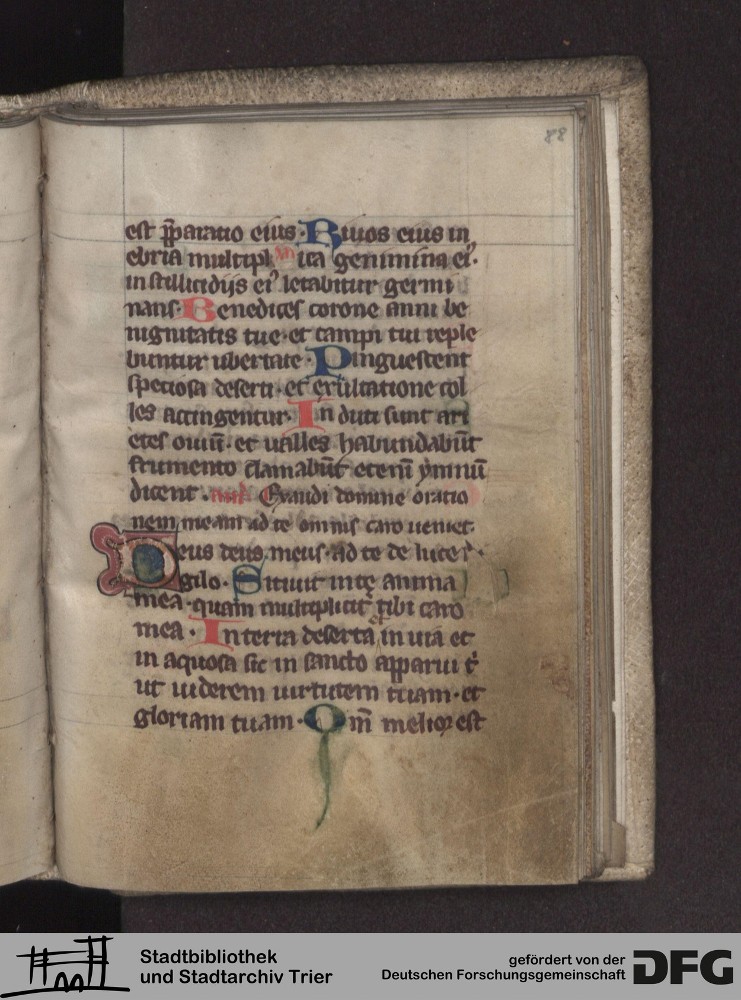 88
est p̄paratio eius· Riuos eius in
ebria multipl ica genimina eiꝰ·
in stillicidijs eiꝰ letabitur germi
nans· Benedices corone anni be
nignitatis tue· et campi tui reple
buntur ubertate· Pinguescent
speciosa deserti· et exultatione col
les accingentur· In duti sunt ari
etes ouiū· et ualles habundabūt
frumento clamabūt etenī ymnū
dicent· Exaudi domine oratio
nem meam ad te omnis caro ueniet·
Deus deus meus· ad te de luce
uigilo· Sitiuit in te anima
mea· quam multipliciť tibi caro
mea· In terra deserta in uia et
in aquosa sic in sancto apparui t̄
ut uiderem uirtutem tuam· et
gloriam tuam· Qm̄ melior est
Stadtbibliothek
und Stadtarchiv Trier
gefördert von der
Deutschen Forschungsgemeinschaft
DFG